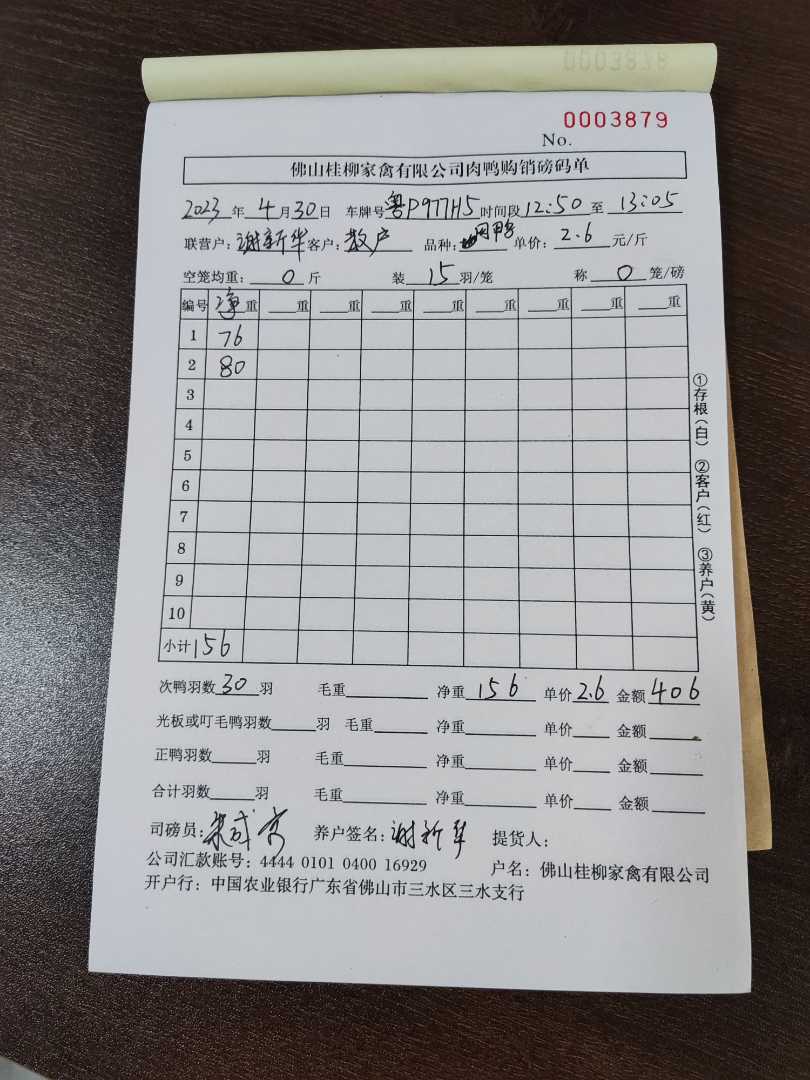 0003878
0003879
No.
佛山桂柳家禽有限公司肉鸭购销磅码单
2023年4月30日 车牌号粤P977H5时间段12:50至13:05
联营户：谢新华客户：散户 品种： 单价：2.6元/斤
空笼均重：0斤 装15羽/笼 称0笼/磅
编号 净重 重 重 重 重 重 重 重 重
1 76
2 80
3
4
5
6
7
8
9
10
小计 156
①存根（白） ②客户（红） ③养户（黄）
次鸭羽数30羽 毛重 净重156 单价2.6 金额406
光板或叮毛鸭羽数 羽 毛重 净重 单价 金额
正鸭羽数 羽 毛重 净重 单价 金额
合计羽数 羽 毛重 净重 单价 金额
司磅员： 养户签名：谢新华 提货人：
公司汇款账号：4444 0101 0400 16929 户名：佛山桂柳家禽有限公司
开户行：中国农业银行广东省佛山市三水区三水支行